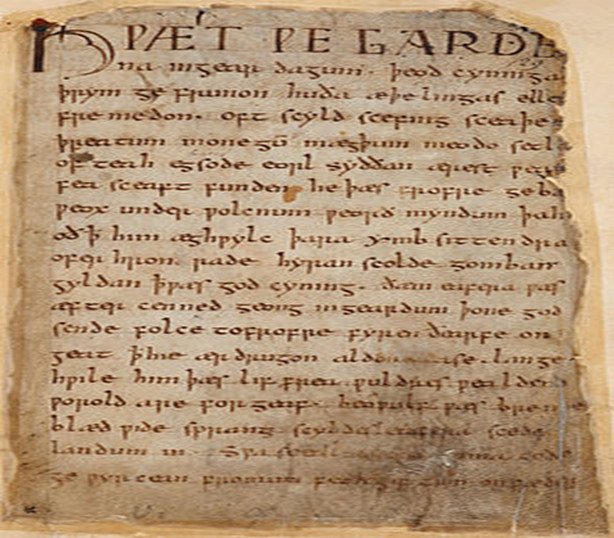 HǷÆT ǷE GARDE
na ingear dagum. þeod cyninga
þrym ge frunon huða æþelingas elle
fremedon. oft scyld scefing sceaþe
þreatum monegū mægþum meodo setl
of teah egsode eorl syððan ærest ƿear
fea sceaft funden he þæs frofre geba
ƿeox under ƿolcnum ƿeorð myndum þah
oð ꝥ him æghƿylc þara ymb sittendra
ofer hron rade hyran scolde gomban
gyldan ꝥ ƿæs god cyning. ðæm eafera ƿæs
æfter cenned geong ingeardum þone god
sende folce tofrofre fyren ðearfe on
geat ꝥ hie ær drugon aldor ase. lange
hƿile him þæs lif frea ƿuldres ƿealdend
ƿorold are for geaf. beoƿulf ƿæs breme
blæd ƿide sprang scyldes eafera scede
landum in. Sƿa sceal
ge ƿyrcean fromum feoh giftum on fæder